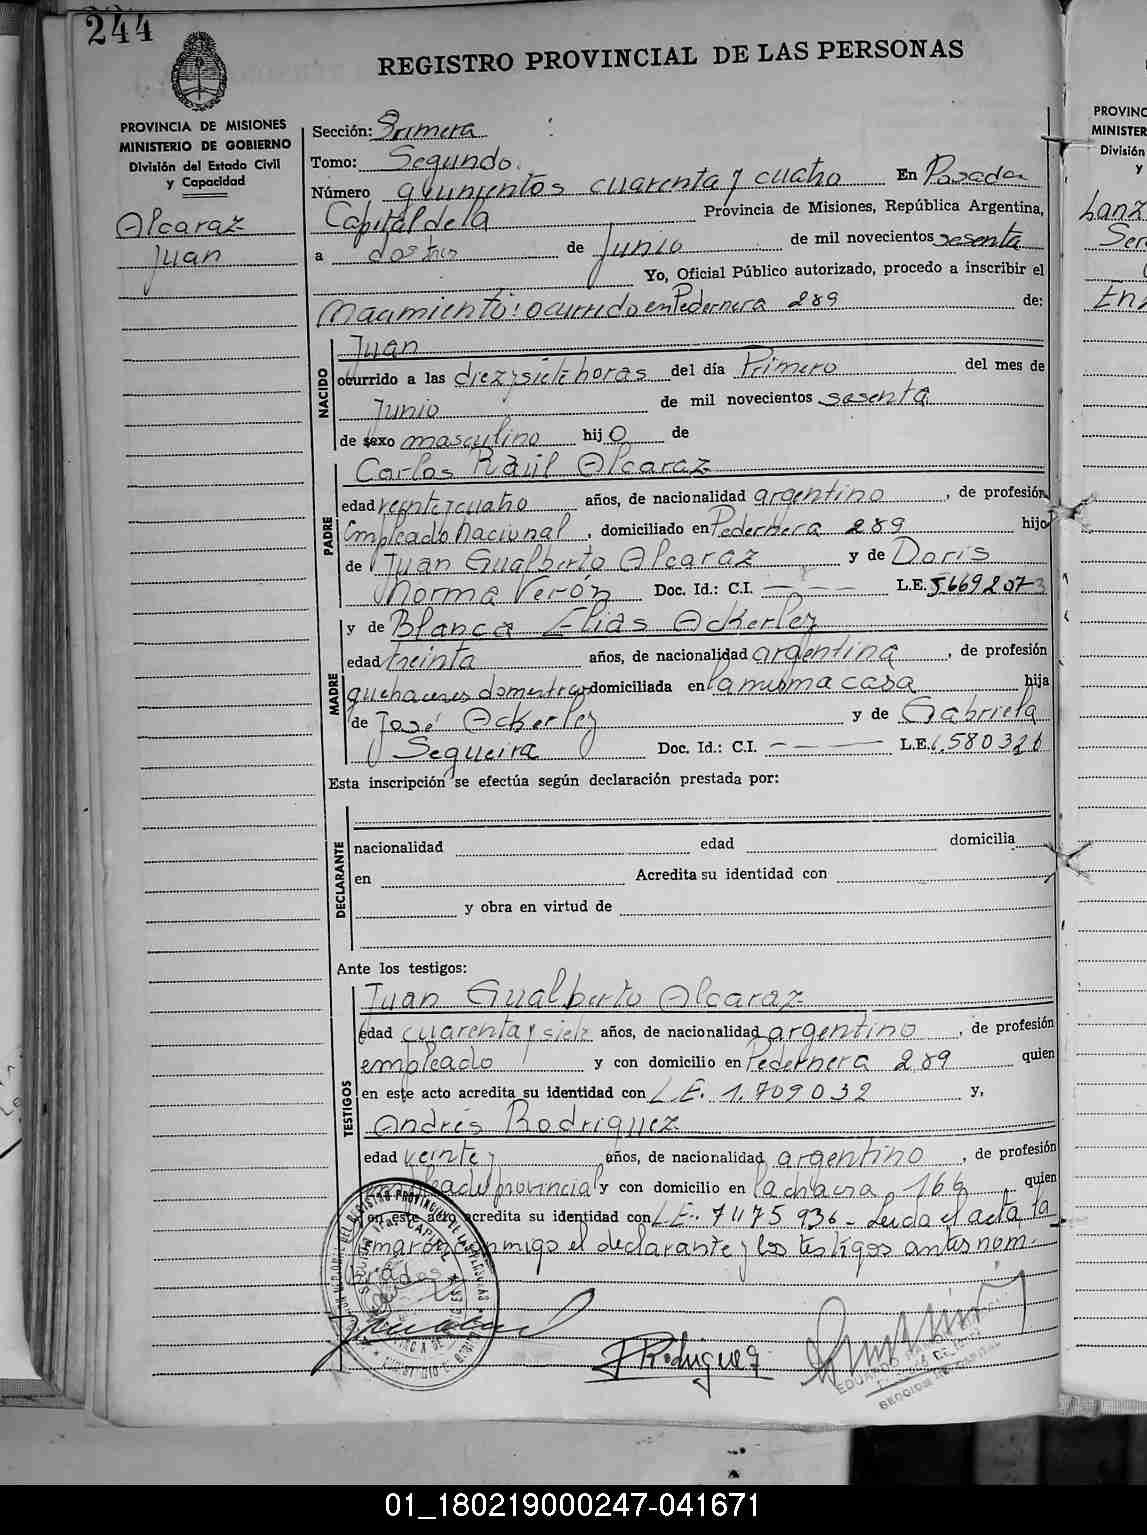 244
REGISTRO PROVINCIAL DE LAS PERSONAS
PROVINCIA DE MISIONES
MINISTERIO DE GOBIERNO
División del Estado Civil
y Capacidad
Alcaraz
Juan
Sección: Primera
Tomo: Segundo
Número quinientos cuarenta y cuatro En Posadas
Capital de la Provincia de Misiones, República Argentina,
a dos de Junio de mil novecientos sesenta
Yo, Oficial Público autorizado, procedo a inscribir el
Nacimiento: ocurrido en Pedernera 289 de:
NACIDO
Juan
ocurrido a las diez y siete horas del día Primero del mes de
Junio de mil novecientos sesenta
de sexo masculino hijo de
PADRE
Carlos Raúl Alcaraz
edad veinte y cuatro años, de nacionalidad argentino, de profesión
Empleado Nacional, domiciliado en Pedernera 289 hijo
de Juan Gualberto Alcaraz y de Doris
Norma Verón Doc. Id.: C.I. — — — L.E. 5669207-3
MADRE
y de Blanca Elias Ackerley
edad treinta años, de nacionalidad argentina, de profesión
quehaceres domesticos domiciliada en la misma casa hija
de José Ackerley y de Gabriela
Sequeira Doc. Id.: C.I. — — — L.E. 6.580326
Esta inscripción se efectúa según declaración prestada por:
DECLARANTE
nacionalidad edad domicilia
en Acredita su identidad con
y obra en virtud de
Ante los testigos:
TESTIGOS
Juan Gualberto Alcaraz
edad cuarenta y siete años, de nacionalidad argentino, de profesión
empleado y con domicilio en Pedernera 289 quien
en este acto acredita su identidad con L.E. 1.709032 y,
Andrés Rodriguez
edad veinte y años, de nacionalidad argentino, de profesión
empleado provincial y con domicilio en la chacra 166 quien
en este acto acredita su identidad con L.E. 7475936 - Leida el acta, la
firmaron conmigo el declarante y los testigos antes nom-
brados
Rodriguez
PROVINC
MINISTER
División
y
01_180219000247-041671